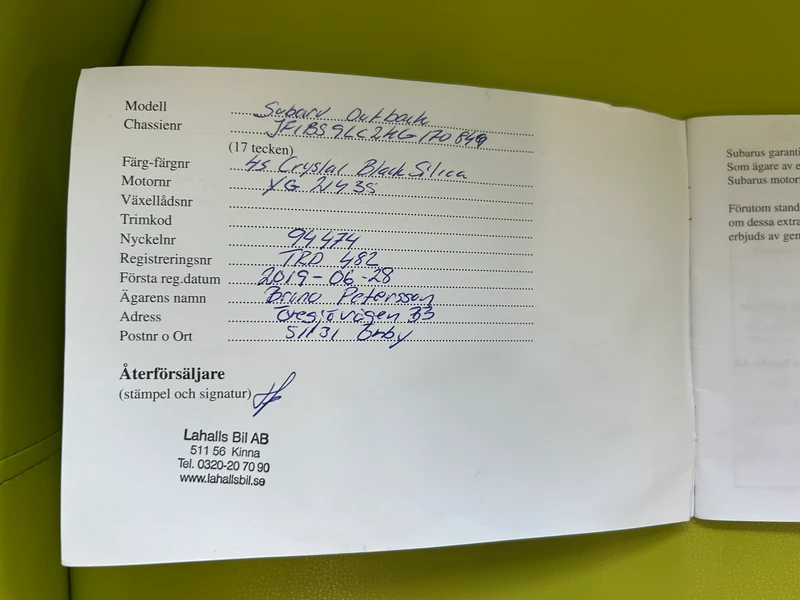 Modell Subaru Outback
Chassienr JF1BS9LC2KG170849
(17 tecken)
Färg-färgnr 4s Crystal Black Silica
Motornr YG 4435
Växellådsnr
Trimkod
Nyckelnr 94474
Registreringsnr TRD 482
Första reg.datum 2019-06-28
Ägarens namn Bruno Petersson
Adress 33
Postnr o Ort 51131 Örby
Återförsäljare
(stämpel och signatur)
Lahalls Bil AB
511 56 Kinna
Tel. 0320-20 70 90
www.lahallsbil.se
Subarus garanti
Som ägare av e
Subarus motor
Förutom stand
om dessa extra
erbjuds av gen